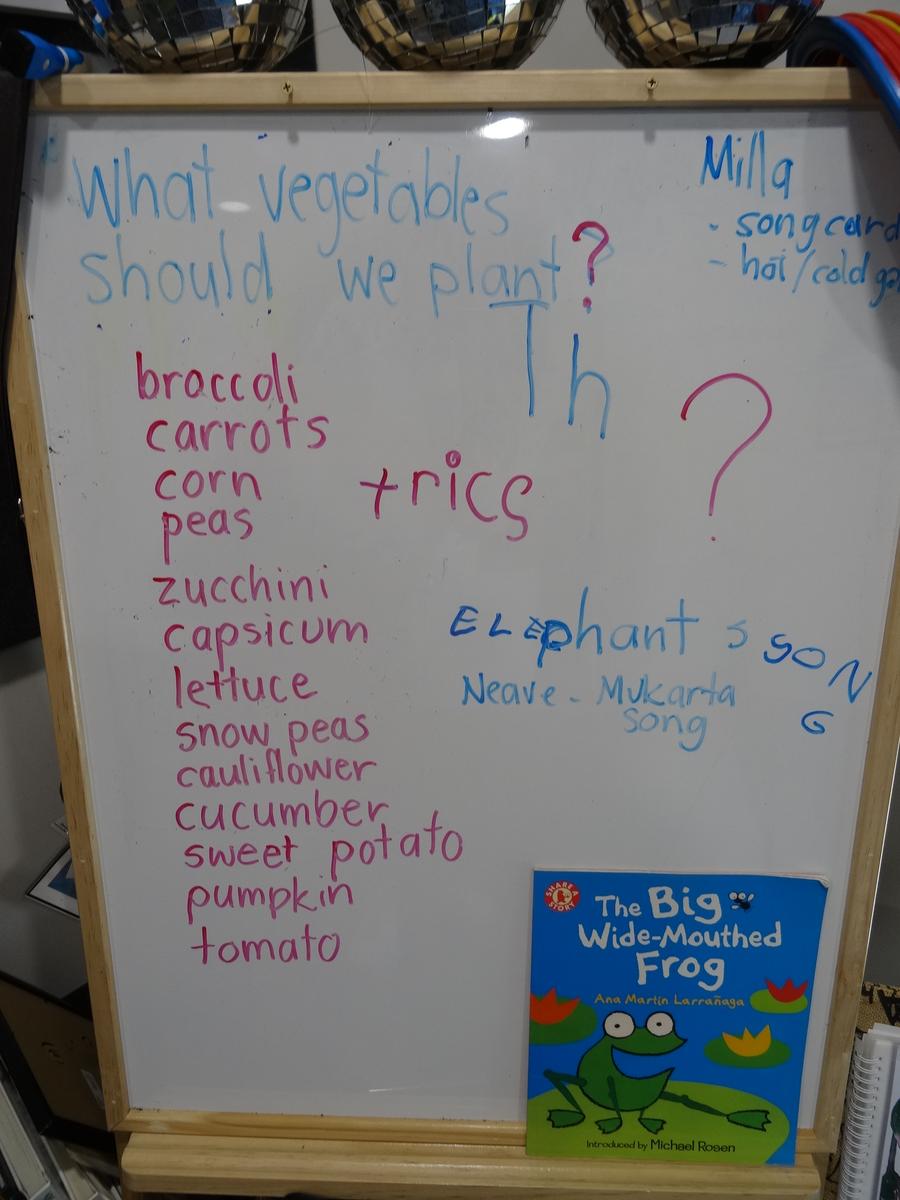 What vegetables
should we plant?
Milla
- song card
- hot/cold
Th
?
broccoli
carrots
corn
peas
zucchini
capsicum
lettuce
snow peas
cauliflower
cucumber
sweet potato
pumpkin
tomato
ELEphant s SONG
Neave - Mukarta
song
SHARE A STORY
The Big
Wide-Mouthed
Frog
Ana Martín Larrañaga
Introduced by Michael Rosen